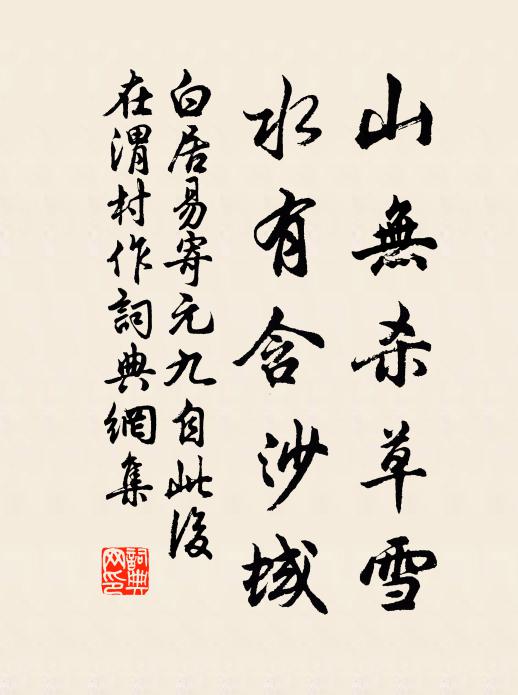 山無杀草雪
水有含沙域
白居易寄元九自此後
在渭村作詞典網集
詞典网印